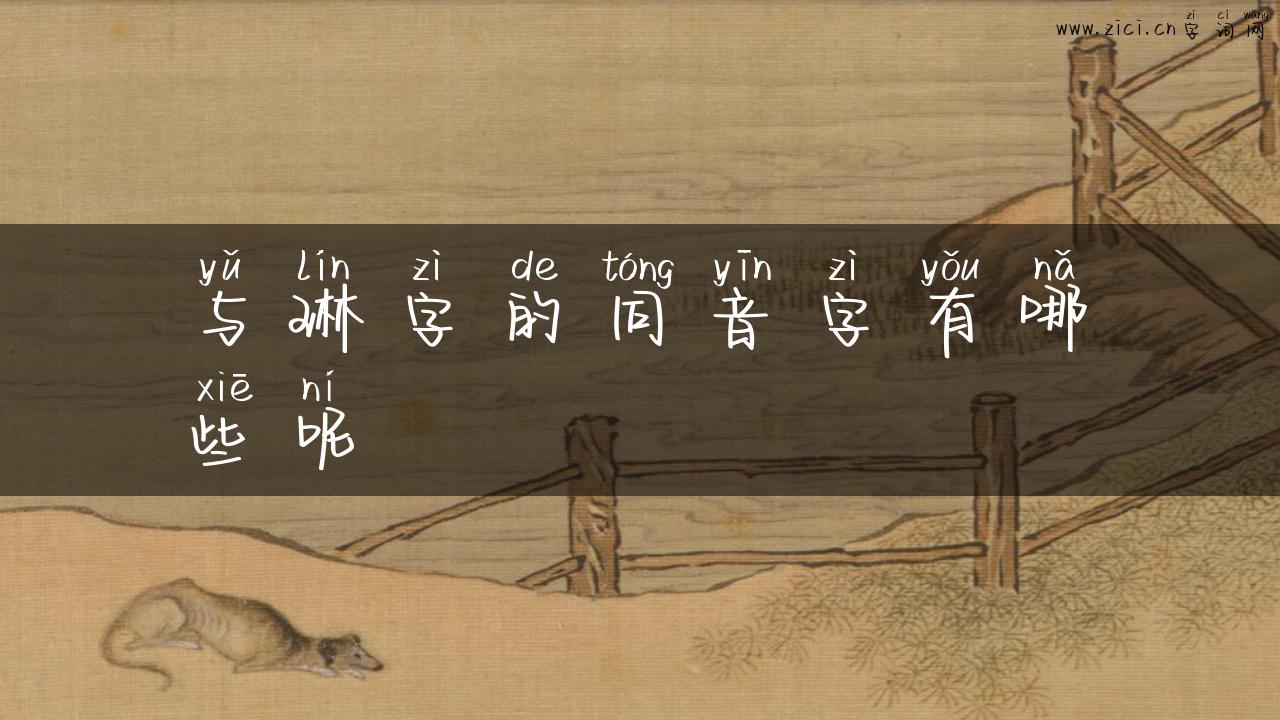 zì cí wǎng
www.zici.cn 字词网
yǔ lín zì de tóng yīn zì yǒu nǎ
与琳字的同音字有哪
xiē ní
些呢